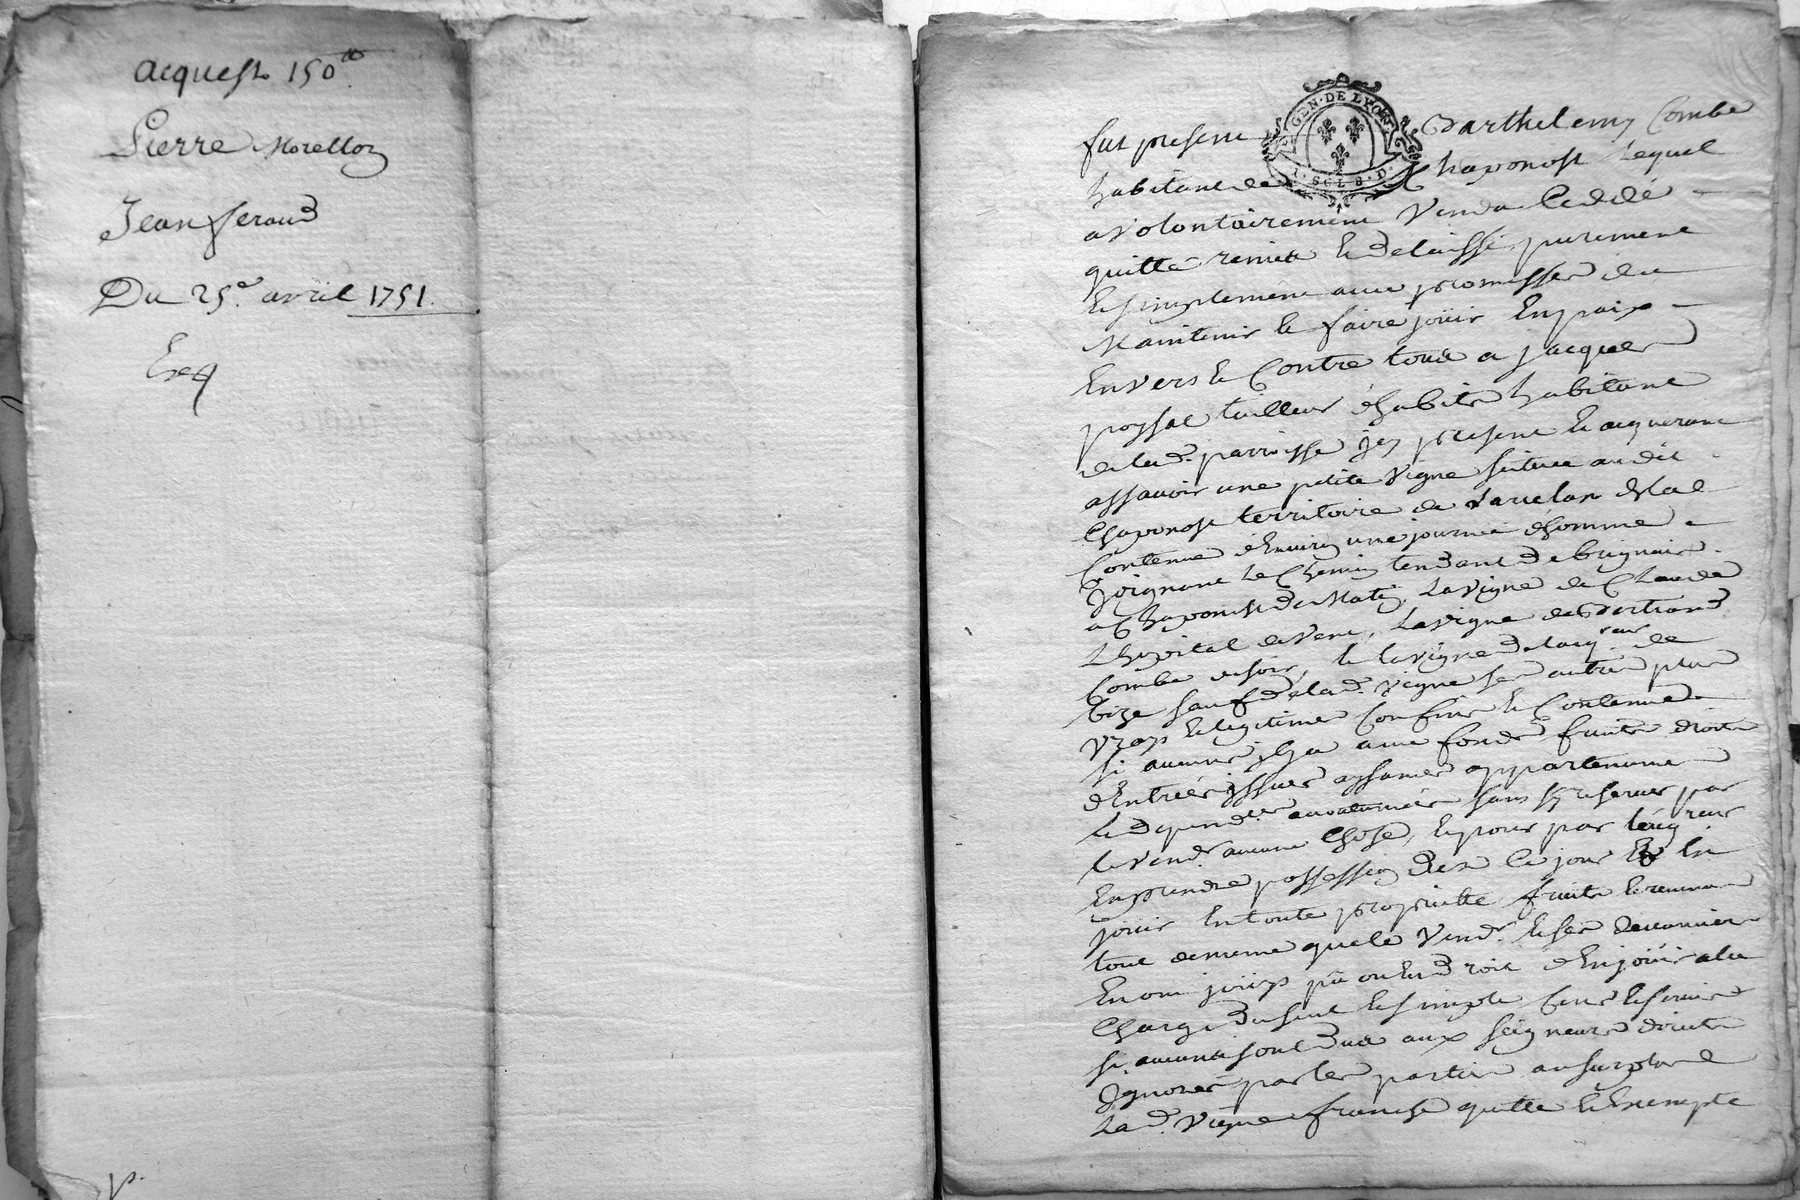 acquest 150ᵗᵗ
Pierre Morellon
Jean feraud
Du 25ᵉ avril 1751.
Exp
p.
GEN · DE LYON
1 · SOL 8 · D ·
fut present Barthelemy Combe
habitant de Chaponost Lequel
a volontairement Vendu Ceddé
quitté remis & delaissé purement
& simplement avec promesses de
Maintenir & faire joüir En paix
Envers & Contre tous a jacques
poyssat tailleur d'habits habitant
de lad. parroisse jcy present & acquerant
assavoir une petite Vigne scituee au dit
Chaponost territoire de
Contenue d'Environ une journée d'homme
Joignant Le Chemin tendant de brignais
a Chaponost de Matin, La Vigne de Claude
Lhopital de Vent, La Vigne de Bertrand
Combe de soir, & la Vigne de de
bize sauf de lad. Vigne ses autres plus
Vrays & legitimes Confins & Contenue
si aucuns il y a avec fonds fruits droits
d'Entrées jssues aysances appartenances
& dependces accoutumées sans s'y reserver par
le Vendr aucune Chose, & pour par l'acqreur
En prendre possession dez Ce jour & En
jouir En toute proprietté fruits & revenus
tout de meme que le Vendr & ses devanciers
En ont joüys pû ou eu droit d'En joüir a la
Charge du seul & simple Cens & servis
si aucuns sont dus aux seigneurs directs
Ignorés par les parties au surplus
La d. Vigne franche quitte & Exempte